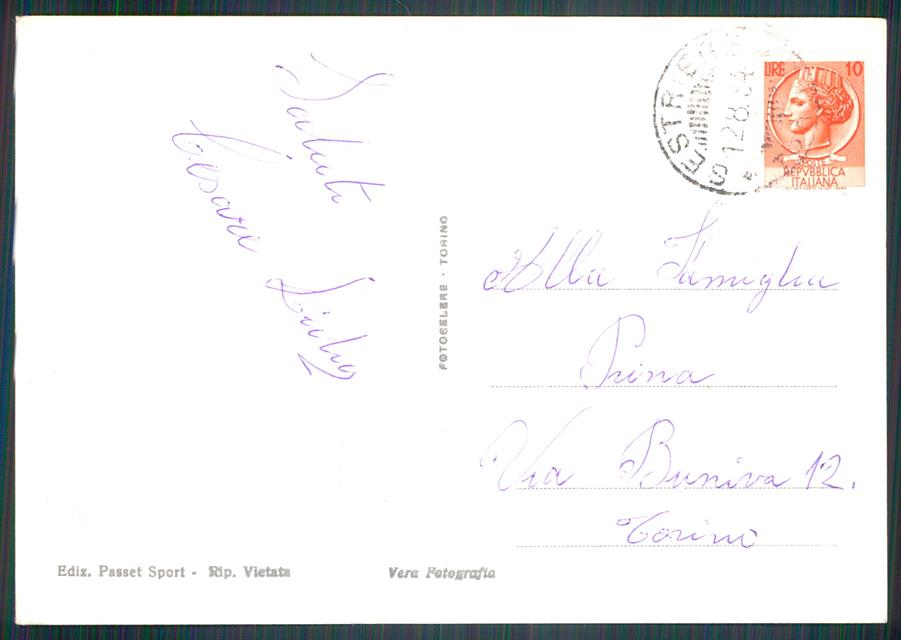 Saluti
Cesare Lidia
FOTOCELERE - TORINO
SESTRIE
12.8.
LIRE 10
POSTE
REPVBBLICA
ITALIANA
Alla Famiglia
Prina
Via Buniva 12.
Torino
Ediz. Passet Sport - Rip. Vietata
Vera Fotografia